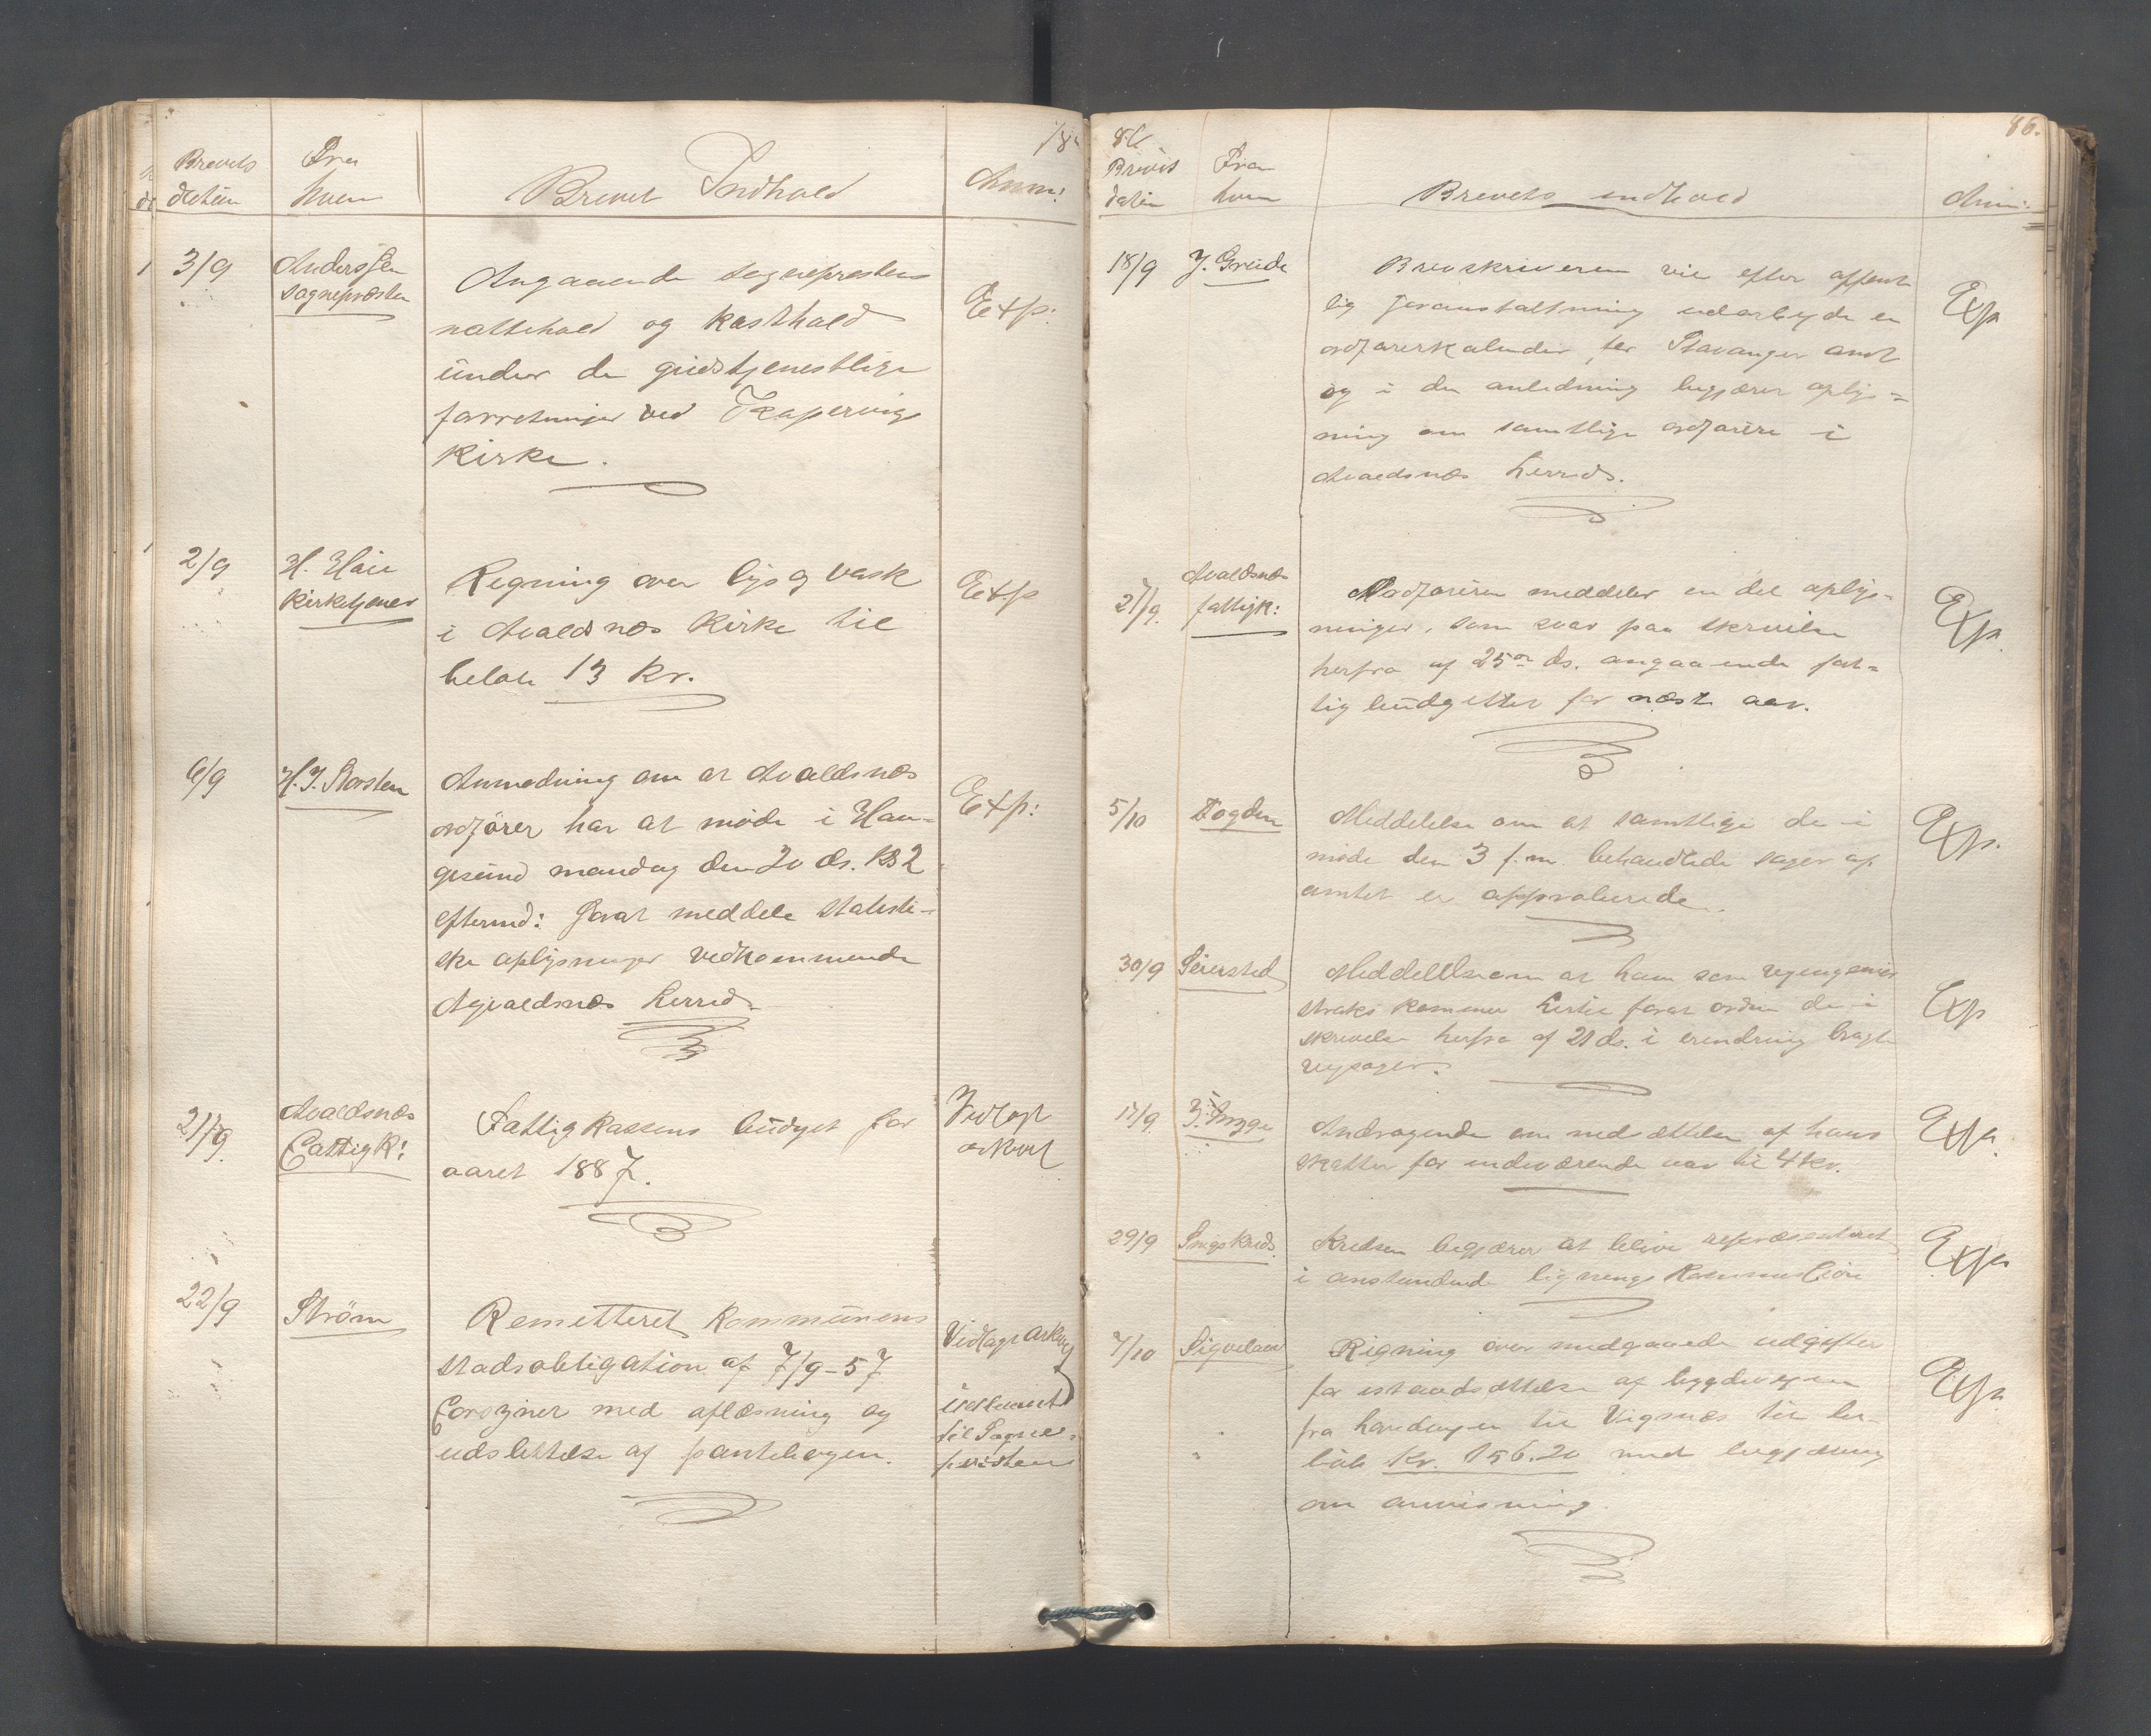 Brevets Fra
datum hvem Brevet Indhold Anm:
3/9 Anderssen
Sognepresten
Angaaende sogneprestens
nattehold og kosthold
under de gudstjenestlige
forretninger ved Kopervigs
Kirke.
Exp:
2/9 H. Håie
Kirketjener
Regning over lys og vask
i Avaldsnæs Kirke til
beløb 13 Kr.
Exp
6/9 H. J. Storsten
Anmodning om at Avaldsnæs
ordfører har at møde i Hau-
gesund mandag den 20 ds. Kl 2
eftermd: forat meddele statisti-
ske oplysninger vedkommende
Agvaldsnæs herred
Exp:
21/9 Avaldsnæs
Fattigk:
Fattigkassens budget for
aaret 1887.
Vedlagt
arkivet
22/9 Strøm
Remitteret Kommunens
stadsobligation af 7/9-57
forsyner med aflæsning og
udslettelse af pantebogen.
Vedlagt Arkivet
udlaant
til Sogne-
presten
86 86.
Brevets Fra
datum hvem Brevets indhold Anm:
18/9 J. Greide
Brevskriveren vil efter offent
lig foranstaltning udarbeide en
ordførerkalender for Stavanger amt
og i den anledning begjærer oplys=
ning om samtlige ordførere i
Avaldsnæs herred.
Exp
27/9. Avaldsnæs
fattigk:
Ordføreren meddeler en del oplys-
ninger, som svar paa skrivelse
herfra af 25de ds. angaaende fat=
tigbudgettet for næste aar.
Exp.
5/10 Fogden
Meddelelse om at samtlige de i
møde den 3 f.m. behandlede sager af
amtet er approberede.
Exp.
30/9 Seiersted
Meddelelse om at han som veiingeniør
straks kommer hertil forat ordne de i
skrivelse herfra af 21 ds. i erindring bragte
veisager.
Exp
17/9.
Andragende om nedsættelse af hans
skatter for indeværende aar til 4 kr.
Exp.
29/9
Kredsen begjærer at blive repræsenteret
i anstundende ligningskommission
Exp
7/10 Sigvelan
Regning over medgaaede udgifter
for istandsættelse af bygdeveien
fra til Vigsnæs til be-
løb Kr. 156.20 med begjæring
om anvisning.
Exp